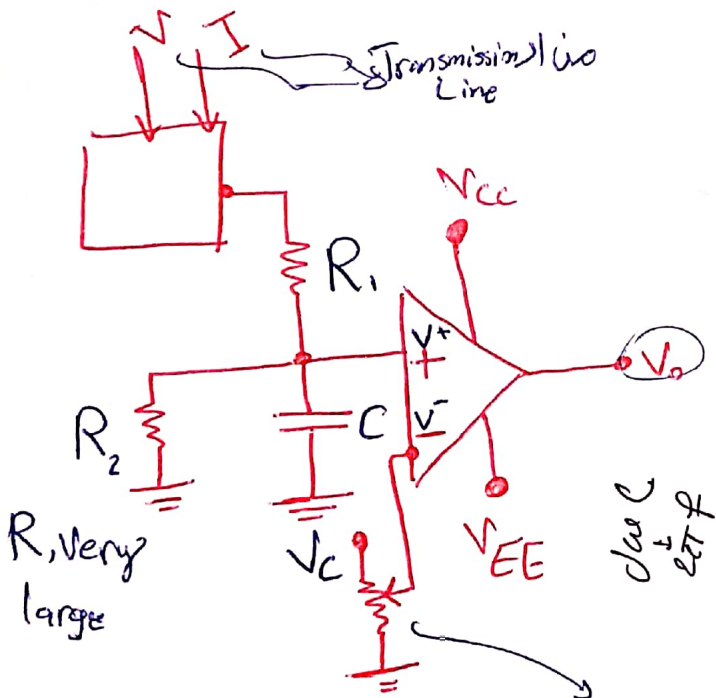 V I
Transmission من ال
Line
Vcc
R₁
V⁺
+
V₀
R₂
C
V⁻
−
R, Very
large
V_C
V_EE